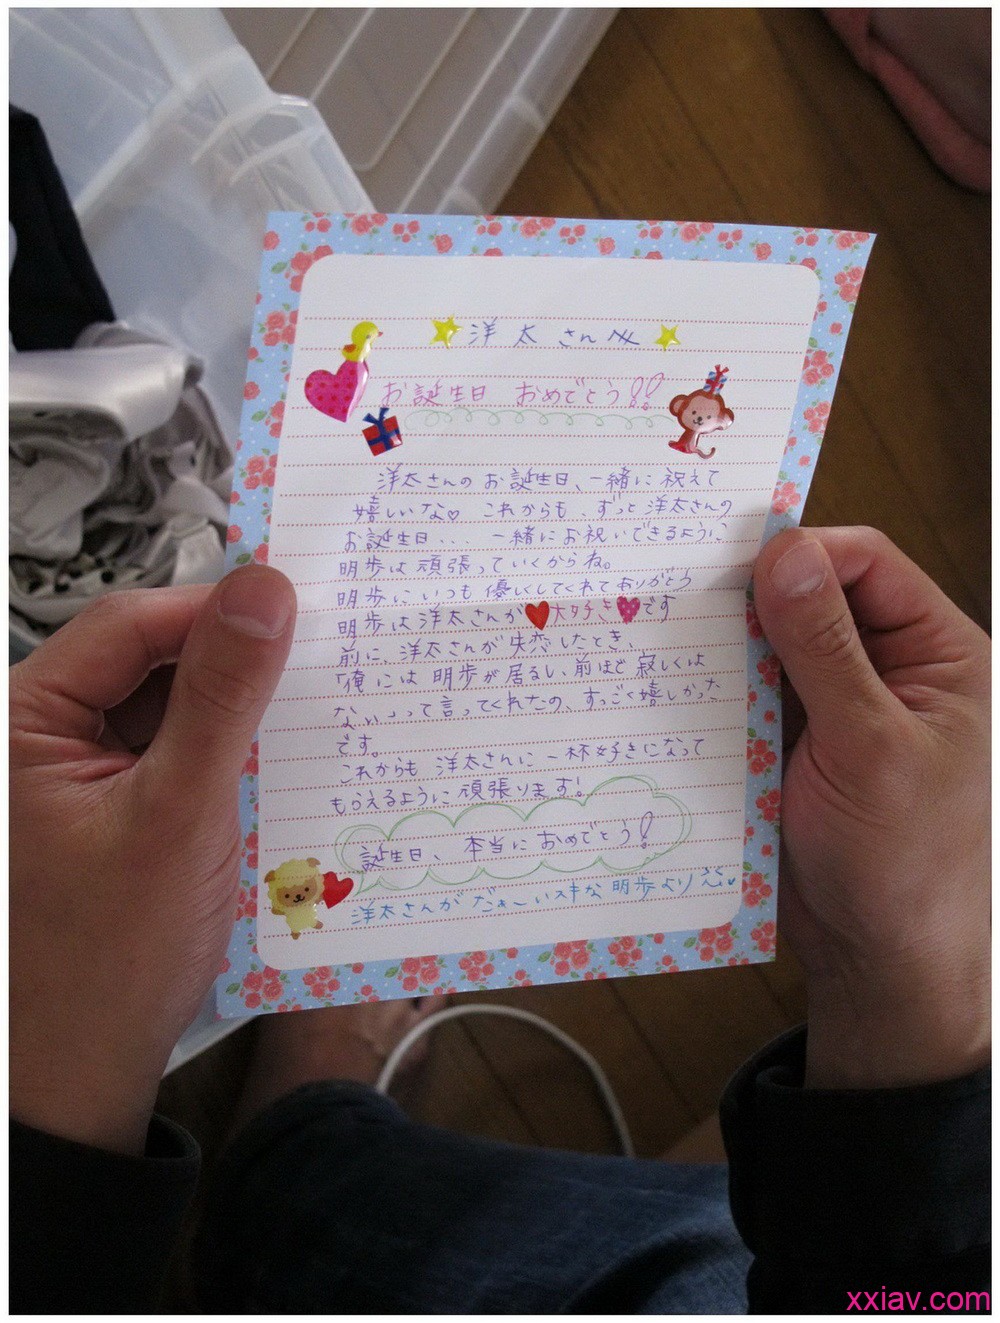 洋太さんへ
お誕生日 おめでとう!!
洋太さんのお誕生日、一緒に祝えて
嬉しいな♡ これからも、ずっと洋太さんの
お誕生日... 一緒にお祝いできるように
明歩は頑張っていくからね。
明歩にいつも優しくしてくれてありがとう
明歩は洋太さんが大好きです
前に、洋太さんが失恋したとき、
「俺には明歩が居るし、前ほど寂しくは
ない」って言ってくれたの、すっごく嬉しかった
です。
これからも 洋太さんに一杯好きになって
もらえるように頑張ります!
誕生日、本当におめでとう!
洋太さんがだぁーいスキな 明歩より
xxiav.com